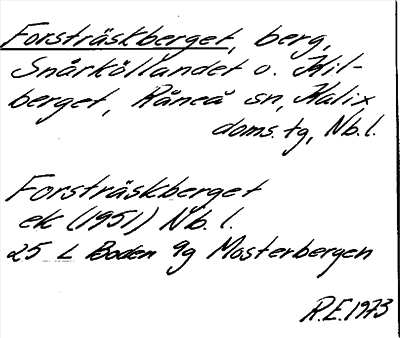 Forsträskberget, berg,
Snårköllandet o. Kil-
berget, Råneå sn, Kalix
doms.tg, Nb.l.
Forsträskberget
ek (1951) Nb.l.
25 L Boden 9g Mosterbergen
R.E.1973